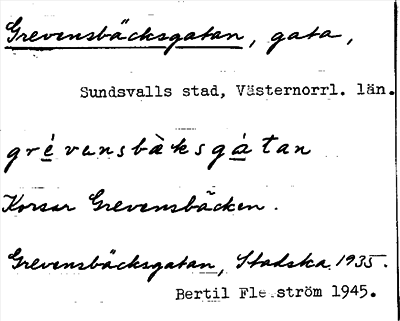 Grevensbäcksgatan, gata,
Sundsvalls stad, Västernorrl. län.
grévensbàksgátan
Korsar Grevensbäcken.
Grevensbäcksgatan, Stadska. 1935.
Bertil Fle.ström 1945.